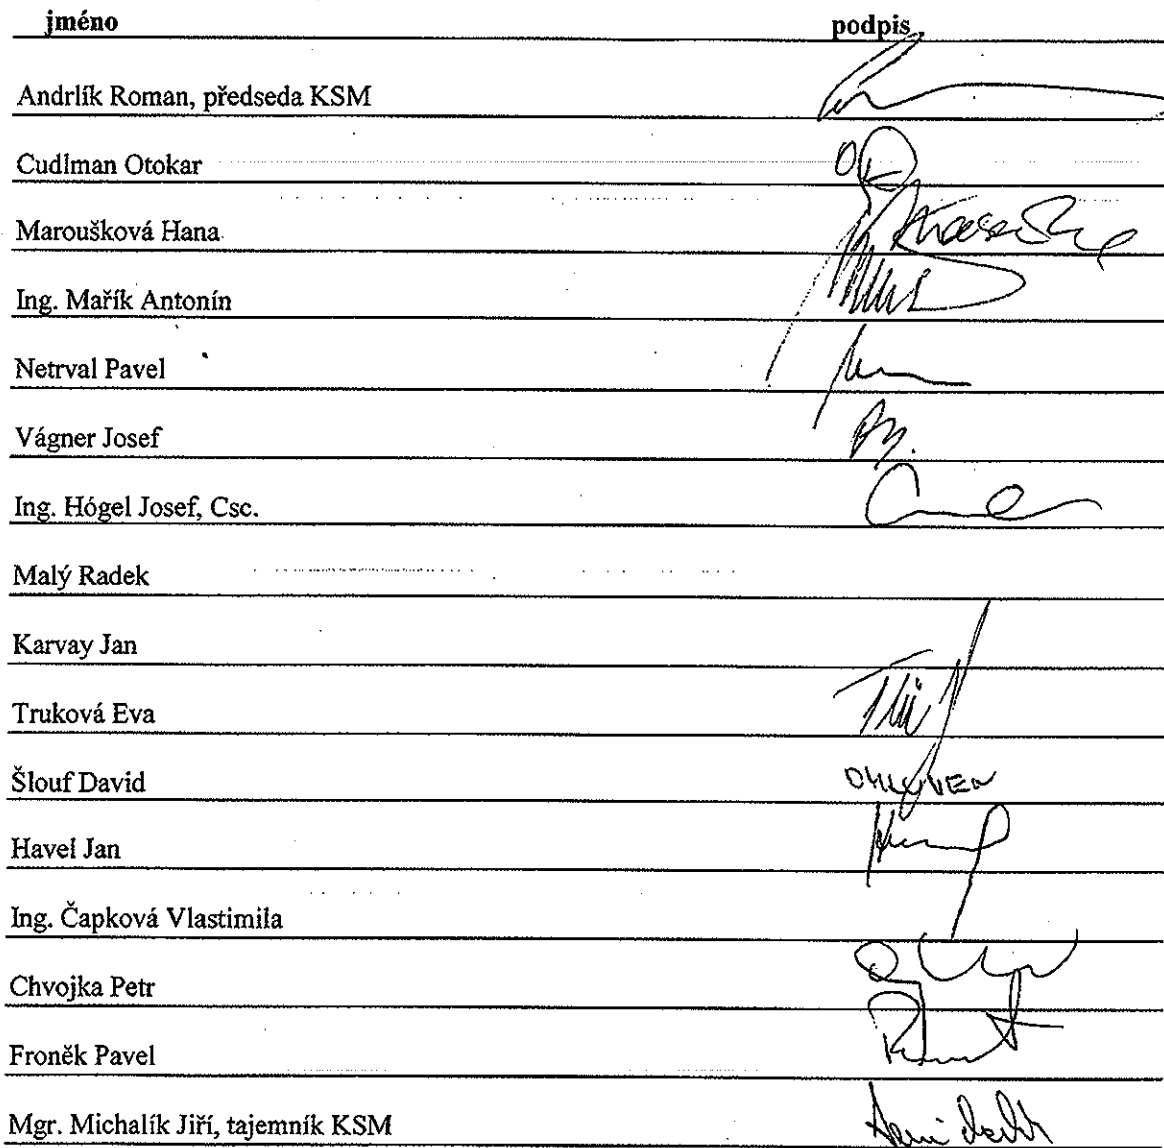 jméno podpis
Andrlík Roman, předseda KSM
Cudlman Otokar
Maroušková Hana
Ing. Mařík Antonín
Netrval Pavel
Vágner Josef
Ing. Hógel Josef, Csc.
Malý Radek
Karvay Jan
Truková Eva
Šlouf David OMLUVEN
Havel Jan
Ing. Čapková Vlastimila
Chvojka Petr
Froněk Pavel
Mgr. Michalík Jiří, tajemník KSM